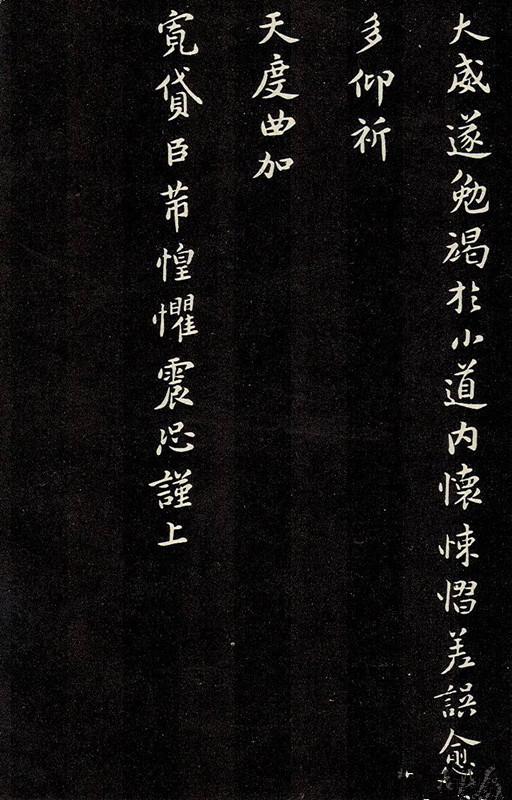 大威遂勉竭於小道内懷悚慴差誤愈
多仰祈
天度曲加
寬貸臣芾惶懼震恐謹上